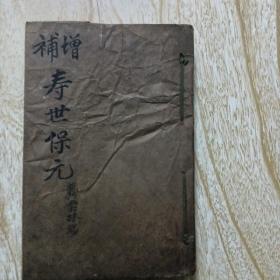 增補
寿世保元